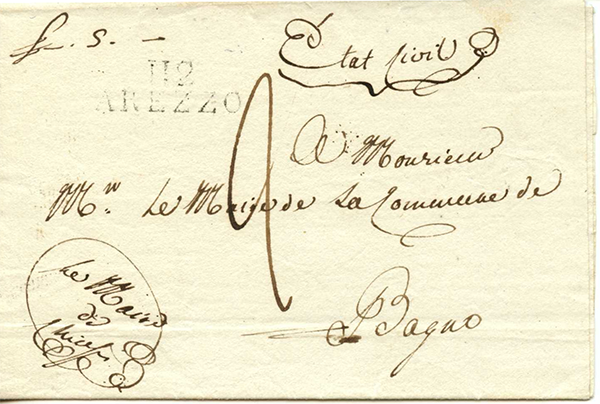 fr. s. —
Etat Civil
112
AREZZO
A Monsieur
Mr. Le Maire de La Commune de
Bagno
Le Maire
de